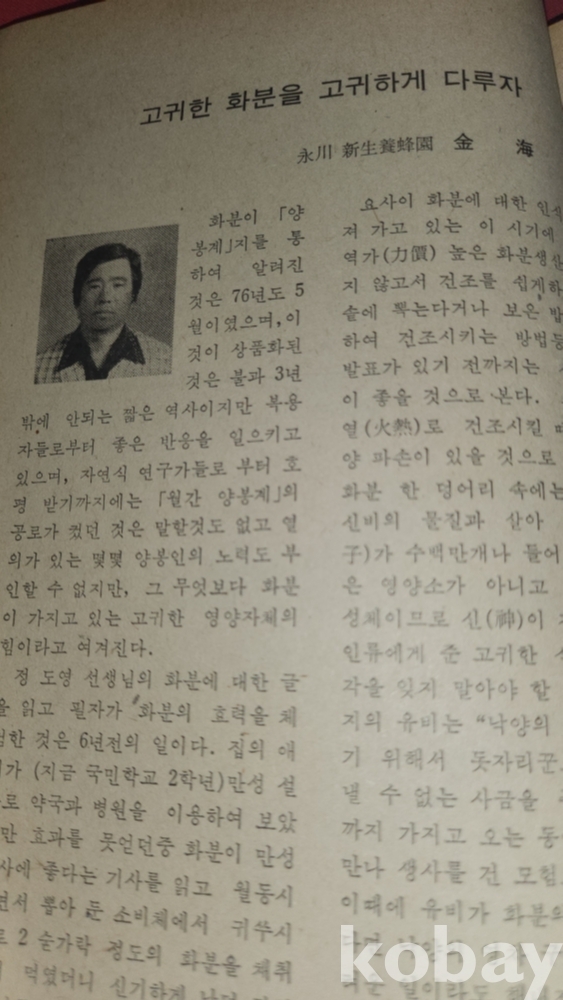 고귀한 화분을 고귀하게 다루자
永川 新生養蜂園 金 海
화분이 「양
봉계」지를 통
하여 알려진
것은 76년도 5
월이였으며, 이
것이 상품화된
것은 불과 3년
밖에 안되는 짧은 역사이지만 복용
자들로부터 좋은 반응을 일으키고
있으며, 자연식 연구가들로 부터 호
평 받기까지에는 「월간 양봉계」의
공로가 컸던 것은 말할것도 없고 열
의가 있는 몇몇 양봉인의 노력도 부
인할 수 없지만, 그 무엇보다 화분
이 가지고 있는 고귀한 영양자체의
힘이라고 여겨진다.
정 도영 선생님의 화분에 대한 글
을 읽고 필자가 화분의 효력을 체
험한 것은 6년전의 일이다. 집의 애
가 (지금 국민학교 2학년)만성 설
로 약국과 병원을 이용하여 보았
만 효과를 못얻던중 화분이 만성
사에 좋다는 기사를 읽고 월동시
면서 뽑아 둔 소비체에서 귀뚜시
로 2 숟가락 정도의 화분을 채취
먹였더니 신기하게
요사이 화분에 대한 인식
져 가고 있는 이 시기에
역가(力價) 높은 화분생산
지 않고서 건조를 쉽게하
솥에 뽁는다거나 보온 밥
하여 건조시키는 방법등
발표가 있기 전까지는
이 좋을 것으로 본다.
열(火熱)로 건조시킬 때
양 파손이 있을 것으로
화분 한 덩어리 속에는
신비의 물질과 살아
子)가 수백만개나 들어
은 영양소가 아니고
성체이므로 신(神)이
인류에게 준 고귀한
각을 잊지 말아야 할
지의 유비는 "낙양의
기 위해서 돗자리꾼
낼 수 없는 사금을
까지 가지고 오는 동
만나 생사를 건 모험
이때에 유비가 화분의
kobay